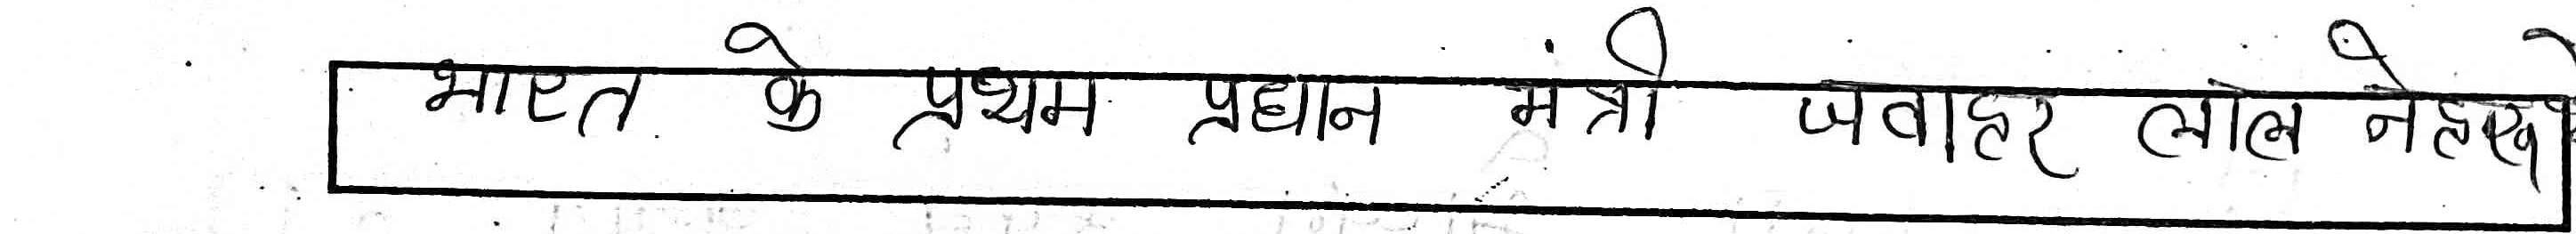 भारत के प्रथम प्रधान मंत्री जवाहर लाल नेहरू थे